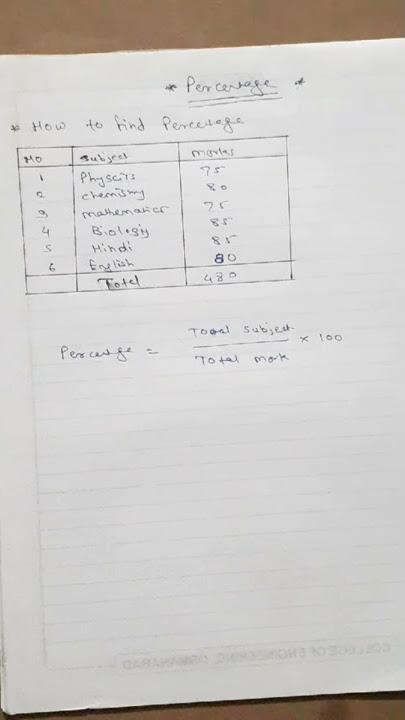 * Percentage *
* How to find Percentage
NO Subject Marks
1 Physcits 75
2 chemistry 80
3 mathematics 75
4 Biology 85
5 Hindi 85
6 English 80
Total 480
Percentge = Total Subject / Total mark × 100
COLLEGE OF ENGINEERING, OSMANABAD